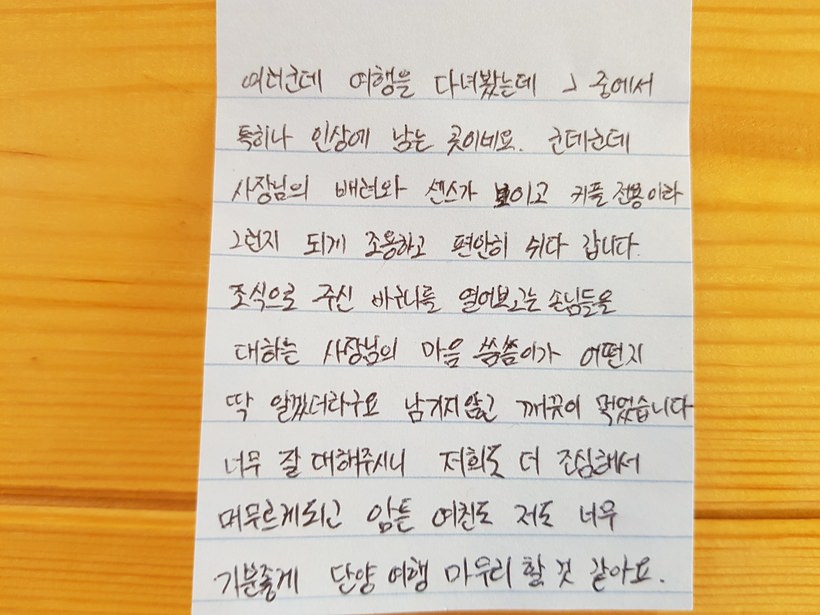 여러군데 여행을 다녀봤는데 그 중에서
특히나 인상에 남는 곳이네요. 군데군데
사장님의 배려와 센스가 보이고 커플 전용이라
그런지 되게 조용하고 편안히 쉬다 갑니다.
조식으로 주신 바구니를 열어보고는 손님들을
대하는 사장님의 마음 씀씀이가 어떤지
딱 알겠더라구요 남기지않고 깨끗이 먹었습니다
너무 잘 대해주시니 저희도 더 조심해서
머무르게되고 암튼 여친도 저도 너무
기분좋게 단양 여행 마무리 할 것 같아요.